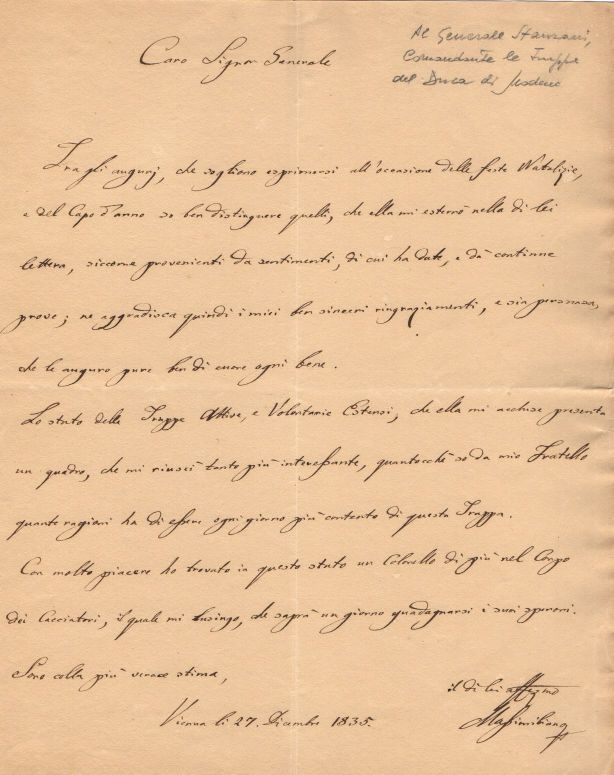 Al Generale Stanzani,
Comandante le Truppe
del Duca di Modena
Caro Signor Generale
Tra gli augurj, che sogliono esprimersi all'occasione delle feste Natalizie,
e del Capo d'anno so ben distinguere quelli, che ella mi esternò nella di lei
lettera, siccome provenienti da sentimenti, di cui ha date, e dà continue
prove; ne aggradisca quindi i miei ben sinceri ringraziamenti, e sia persuaso,
che le auguro pure ben di cuore ogni bene.
Lo stato delle Truppe Attive, e Volontarie Estensi, che ella mi accluse presenta
un quadro, che mi riuscì tanto più interessante, quantocchè so da mio Fratello
quante ragioni ha di essere ogni giorno più contento di questa Truppa.
Con molto piacere ho trovato in questo stato un Colonello di più nel Corpo
dei Cacciatori, il quale mi lusingo, che saprà un giorno guadagnarsi i suoi speroni.
Sono colla più verace stima,
il di lei affezmo
Vienna li 27. Dicembre 1835.
Massimiliano